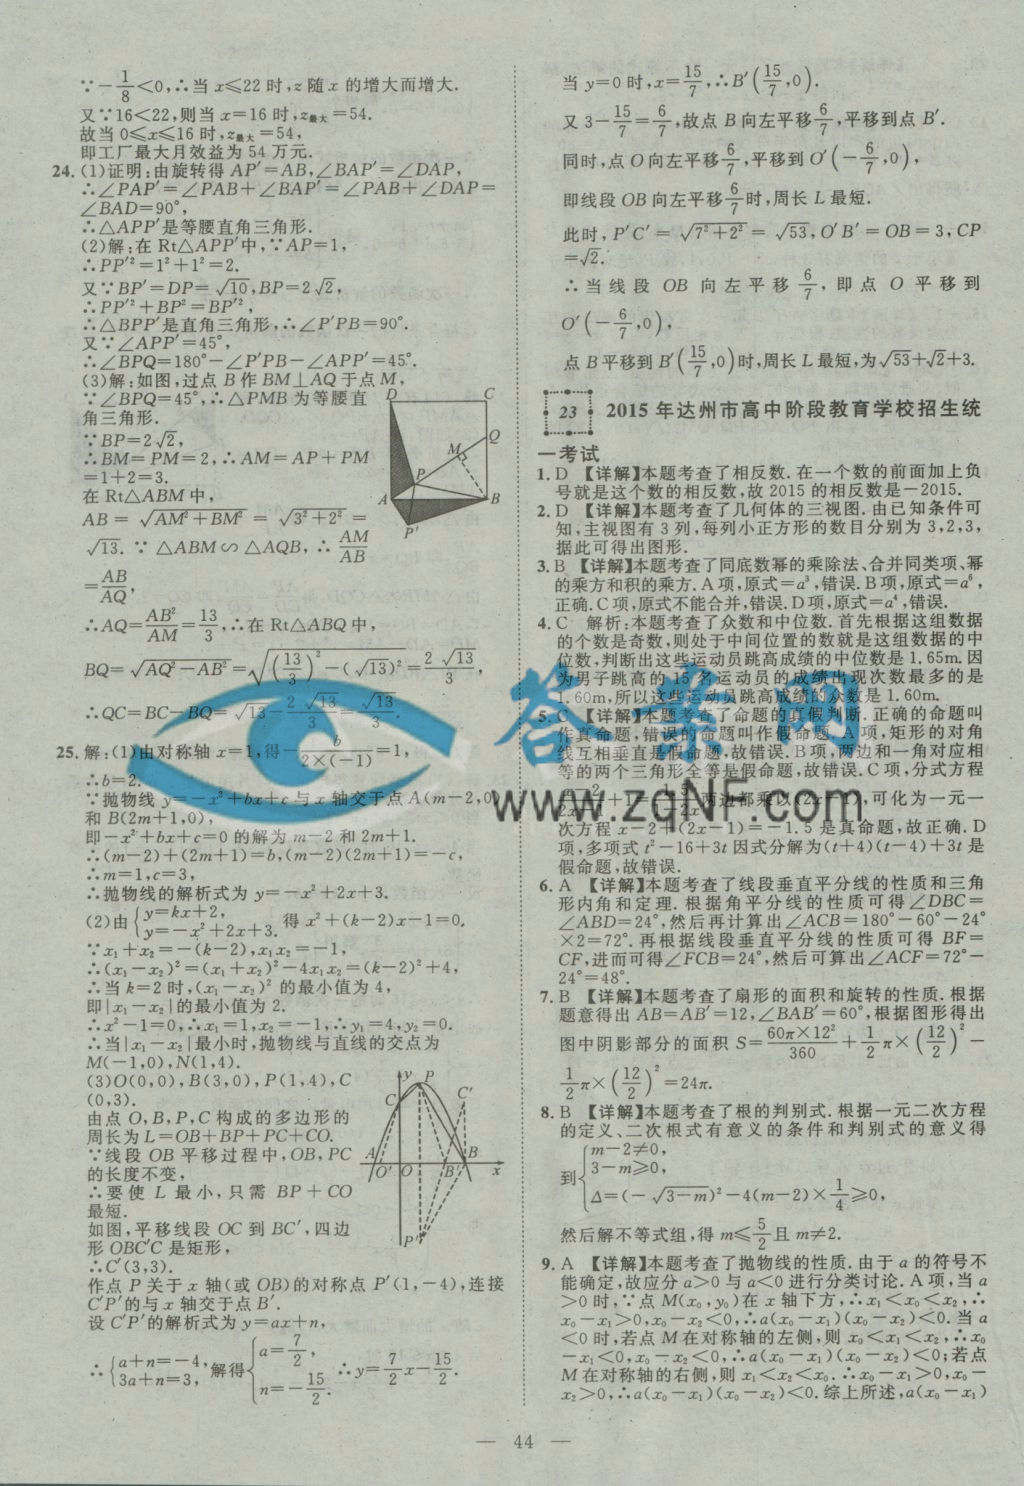 ∵-1/8<0,∴当x≤22时,z随x的增大而增大.
又∵16<22,则当x=16时,z最大=54.
故当0≤x≤16时,z最大=54,
即工厂最大月效益为54万元.
24.(1)证明:由旋转得AP′=AB,∠BAP′=∠DAP,
∴∠PAP′=∠PAB+∠BAP′=∠PAB+∠DAP=
∠BAD=90°,
∴△APP′是等腰直角三角形.
(2)解:在Rt△APP′中,∵AP=1,
∴PP′²=1²+1²=2.
又∵BP′=DP=√10,BP=2√2,
∴PP′²+BP²=BP′²,
∴△BPP′是直角三角形,∴∠P′PB=90°.
又∵∠APP′=45°,
∴∠BPQ=180°-∠P′PB-∠APP′=45°.
(3)解:如图,过点B作BM⊥AQ于点M,
∵∠BPQ=45°,∴△PMB为等腰直
角三角形.
∵BP=2√2,
∴BM=PM=2,∴AM=AP+PM
=1+2=3.
在Rt△ABM中,
AB=√(AM²+BM²)=√(3²+2²)=
√13.∵△ABM∽△AQB,∴AM/AB
=AB/AQ,
∴AQ=AB²/AM=13/3,∴在Rt△ABQ中,
BQ=√(AQ²-AB²)=√((13/3)²-(√13)²)=2√13/3,
∴QC=BC-BQ=√13-2√13/3=√13/3.
D C Q M P A B P′
25.解:(1)由对称轴x=1,得-b/(2×(-1))=1,
∴b=2.
∵抛物线y=-x²+bx+c与x轴交于点A(m-2,0)
和B(2m+1,0),
即-x²+bx+c=0的解为m-2和2m+1.
∴(m-2)+(2m+1)=b,(m-2)(2m+1)=-c,
∴m=1,c=3,
∴抛物线的解析式为y=-x²+2x+3.
(2)由{y=kx+2, y=-x²+2x+3.得x²+(k-2)x-1=0.
∵x₁+x₂=-(k-2),x₁x₂=-1,
∴(x₁-x₂)²=(x₁+x₂)²-4x₁x₂=(k-2)²+4,
∴当k=2时,(x₁-x₂)²的最小值为4,
即|x₁-x₂|的最小值为2.
∴x²-1=0,∴x₁=1,x₂=-1,∴y₁=4,y₂=0.
∴当|x₁-x₂|最小时,抛物线与直线的交点为
M(-1,0),N(1,4).
(3)O(0,0),B(3,0),P(1,4),C
(0,3).
由点O,B,P,C构成的多边形的
周长为L=OB+BP+PC+CO.
∵线段OB平移过程中,OB,PC
的长度不变,
∴要使L最小,只需BP+CO
最短.
如图,平移线段OC到BC′,四边
形OBC′C是矩形,
∴C′(3,3).
作点P关于x轴(或OB)的对称点P′(1,-4),连接
C′P′的与x轴交于点B′.
设C′P′的解析式为y=ax+n,
∴{a+n=-4, 3a+n=3,解得{a=7/2, n=-15/2.∴y=7/2x-15/2.
y P C C′ A B O′ O B′ x P′
当y=0时,x=15/7,∴B′(15/7,0).
又3-15/7=6/7,故点B向左平移6/7,平移到点B′.
同时,点O向左平移6/7,平移到O′(-6/7,0),
即线段OB向左平移6/7时,周长L最短.
此时,P′C′=√(7²+2²)=√53,O′B′=OB=3,CP
=√2.
∴当线段OB向左平移6/7,即点O平移到
O′(-6/7,0),
点B平移到B′(15/7,0)时,周长L最短,为√53+√2+3.
23 2015年达州市高中阶段教育学校招生统
一考试
1.D 【详解】本题考查了相反数.在一个数的前面加上负
号就是这个数的相反数,故2015的相反数是-2015.
2.D 【详解】本题考查了几何体的三视图.由已知条件可
知,主视图有3列,每列小正方形的数目分别为3,2,3,
据此可得出图形.
3.B 【详解】本题考查了同底数幂的乘除法、合并同类项、幂
的乘方和积的乘方.A项,原式=a³,错误.B项,原式=a⁶,
正确.C项,原式不能合并,错误.D项,原式=a⁴,错误.
4.C 解析:本题考查了众数和中位数.首先根据这组数据
的个数是奇数,则处于中间位置的数就是这组数据的中
位数,判断出这些运动员跳高成绩的中位数是1.65m.因
为男子跳高的15名运动员的成绩出现次数最多的是
1.60m,所以这些运动员跳高成绩的众数是1.60m.
5.C 【详解】本题考查了命题的真假判断.正确的命题叫
作真命题,错误的命题叫作假命题.A项,矩形的对角
线互相垂直是假命题,故错误.B项,两边和一角对应相
等的两个三角形全等是假命题,故错误.C项,分式方程
两边都乘以(2x-1),可化为一元一
次方程x-2+(2x-1)=-1.5是真命题,故正确.D
项,多项式t²-16+3t因式分解为(t+4)(t-4)+3t是
假命题,故错误.
6.A 【详解】本题考查了线段垂直平分线的性质和三角
形内角和定理.根据角平分线的性质可得∠DBC=
∠ABD=24°,然后再计算出∠ACB=180°-60°-24°
×2=72°.再根据线段垂直平分线的性质可得BF=
CF,进而可得∠FCB=24°,然后可算出∠ACF=72°-
24°=48°.
7.B 【详解】本题考查了扇形的面积和旋转的性质.根据
题意得出AB=AB′=12,∠BAB′=60°,根据图形得出
图中阴影部分的面积S=60π×12²/360+1/2π×(12/2)²-
1/2π×(12/2)²=24π.
8.B 【详解】本题考查了根的判别式.根据一元二次方程
的定义、二次根式有意义的条件和判别式的意义得
到{m-2≠0, 3-m≥0, Δ=(-√(3-m))²-4(m-2)×1/4≥0,
然后解不等式组,得m≤5/2且m≠2.
9.A 【详解】本题考查了抛物线的性质.由于a的符号不
能确定,故应分a>0与a<0进行分类讨论.A项,当a
>0时,∵点M(x₀,y₀)在x轴下方,∴x₁<x₀<x₂,∴
x₀-x₁>0,x₀-x₂<0,∴a(x₀-x₁)(x₀-x₂)<0.当a
<0时,若点M在对称轴的左侧,则x₀<x₁<x₂,∴x₀
-x₁<0,x₀-x₂<0,∴a(x₀-x₁)(x₀-x₂)<0;若点
M在对称轴的右侧,则x₁<x₂<x₀.∴x₀-x₁>0,x₀-
x₂>0,∴a(x₀-x₁)(x₀-x₂)<0.综上所述,a(x₀-x₁)
答案网
www.zqNF.com
— 44 —